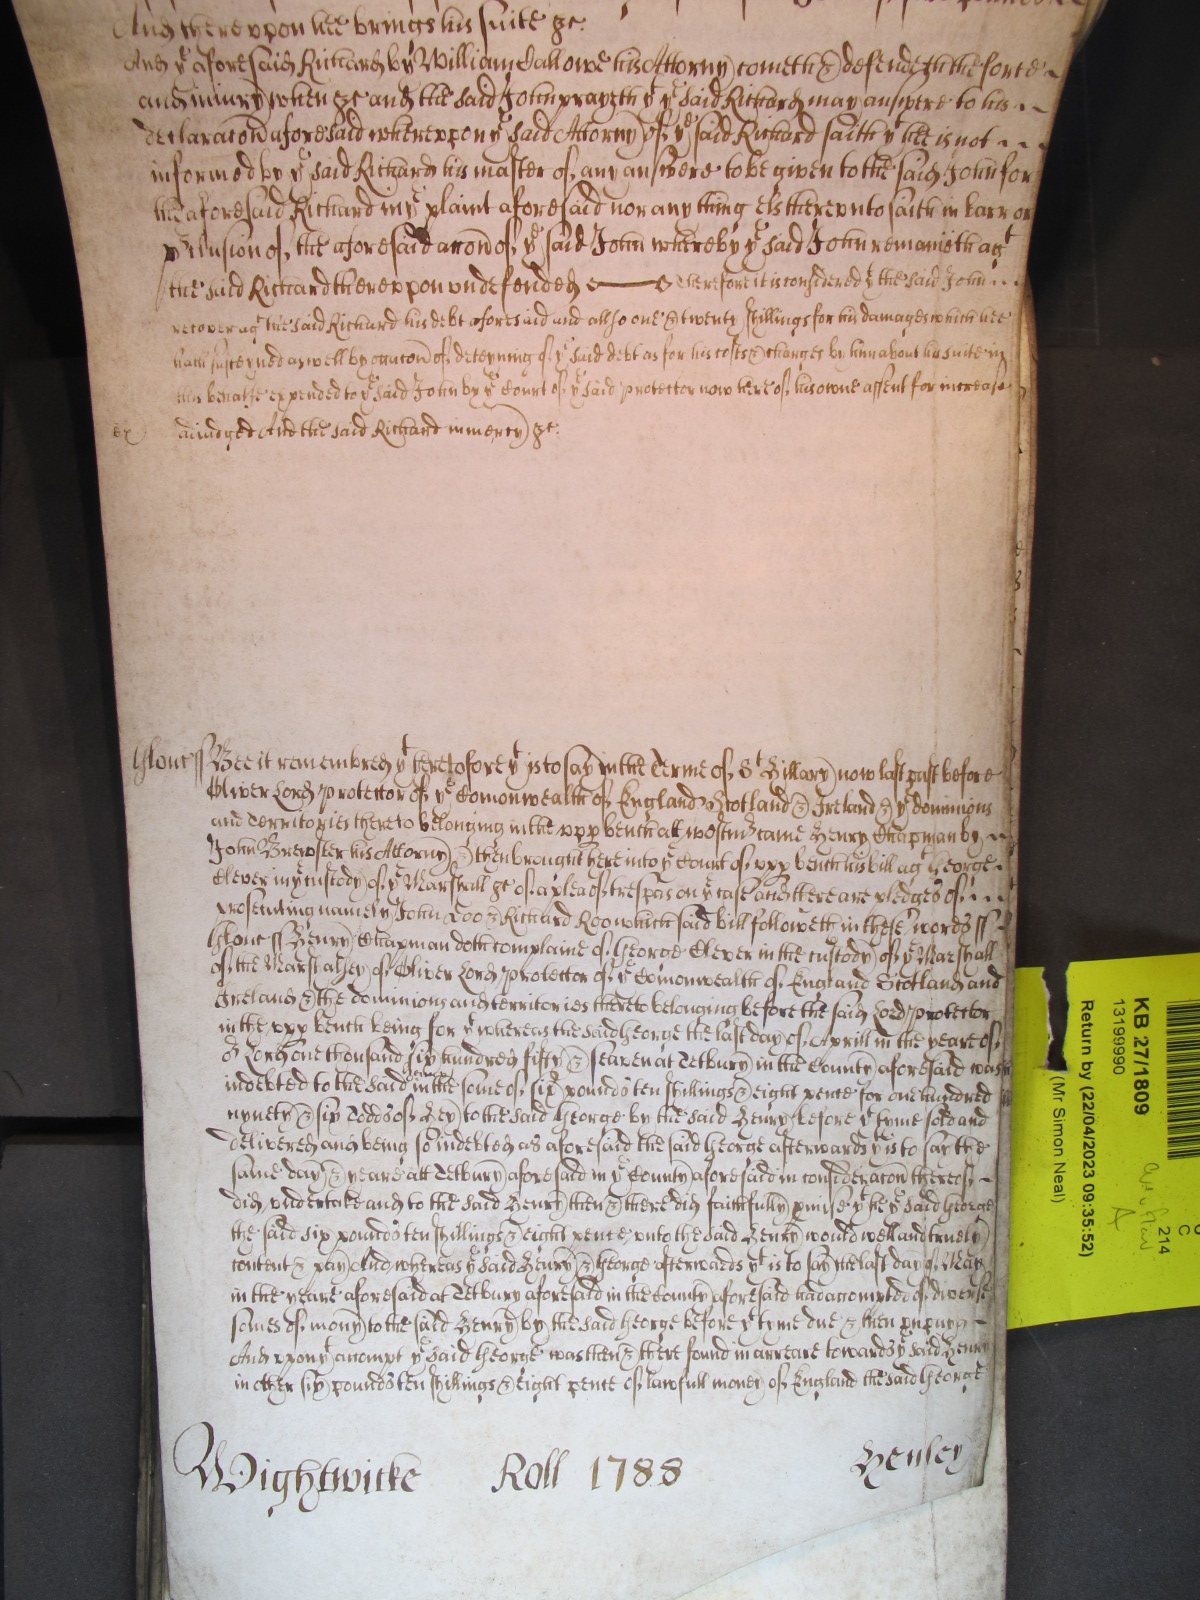 And thereupon hee brings his suite &c.
And ye aforesaid Richard by William Gallowe his Attorny cometh & defendeth the force
and iniury when &c and the said John prayeth yt ye said Richard may answere to his
declaracon aforesaid whereuppon ye said Attorny of ye said Richard saith yt hee is not
informed by ye said Richard his master of any answere to be given to the said John for
the aforesaid Richard in ye plaint aforesaid nor any thing els thereunto saith in barr or
p'clusion of the aforesaid accon of ye said John whereby ye said John remaineth agt
the said Richard thereuppon undefended Therefore it is considered yt the said John
recover agt the said Richard his debt aforesaid and allso one & twenty shillings for his damages which hee
hath susteyned aswell by occacon of deteyning of ye said debt as for his costs & charges by him about his suite in
this behalfe expended to ye said John by ye Court of ye said Protector now here of his owne assent for increase
adiudged And the said Richard in mercy &c.
Glouc ss Bee it remembred yt heretofore yt is to say in the Terme of St Hillary now last past before
Oliver Lord Protector of ye Comonwealth of England Scotland & Ireland & ye dominions
and Territories thereto belonging in the upp bench att Westmr came Henry Chapman by
John Brewster his Attorny & then brought here into ye Court of upp bench his bill agt George
Clever in ye custody of ye Marshall &c of a plea of trespas on ye case and there are pledges of
prosecuting namely John Doo & Richard Roo which said bill followeth in these words ss
Glouc ss Henry Chapman doth complaine of George Clever in the custody of ye Marshall
of the Marshalsey of Oliver Lord Protector of ye Comonwealth of England Scotland and
Ireland & the dominions and territories thereto belonging before the said Lord Protector
in the upp bench being for yt whereas the said George the last day of Aprill in the yeare of
or Lord one thousand six hundred fifty & seaven at Tetbury in the County aforesaid was
indebted to the said Henry in the some of six pounds ten shillings & eight pence for one hundred
nynety & six Todds of Hey to the said George by the said Henry before yt tyme sold and
delivered and being so indebted as aforesaid the said George afterwards yt is to say the
same day & yeare att Tetbury aforesaid in ye County aforesaid in consideracon thereof
did undertake and to the said Henry then & there did faithfully pmise yt he ye said George
the said six pounds ten shillings & eight pence unto the said Henry would well and truely
content & pay And whereas ye said Henry & George afterwards yt is to say the last day of May
in the yeare aforesaid at Tetbury aforesaid in the County aforesaid had accompted of diverse
somes of mony to the said Henry by the said George before yt tyme due & then unpayd
And uppon yt accompt ye said George was then & there found in arreare towards ye said Henry
in other six pounds ten shillings & eight pence of lawfull money of England the said George
Wightwicke Roll 1788 Henley
KB 27/1809
13199990
Return by (22/04/2023 09:35:52)
(Mr Simon Neal)
214
A